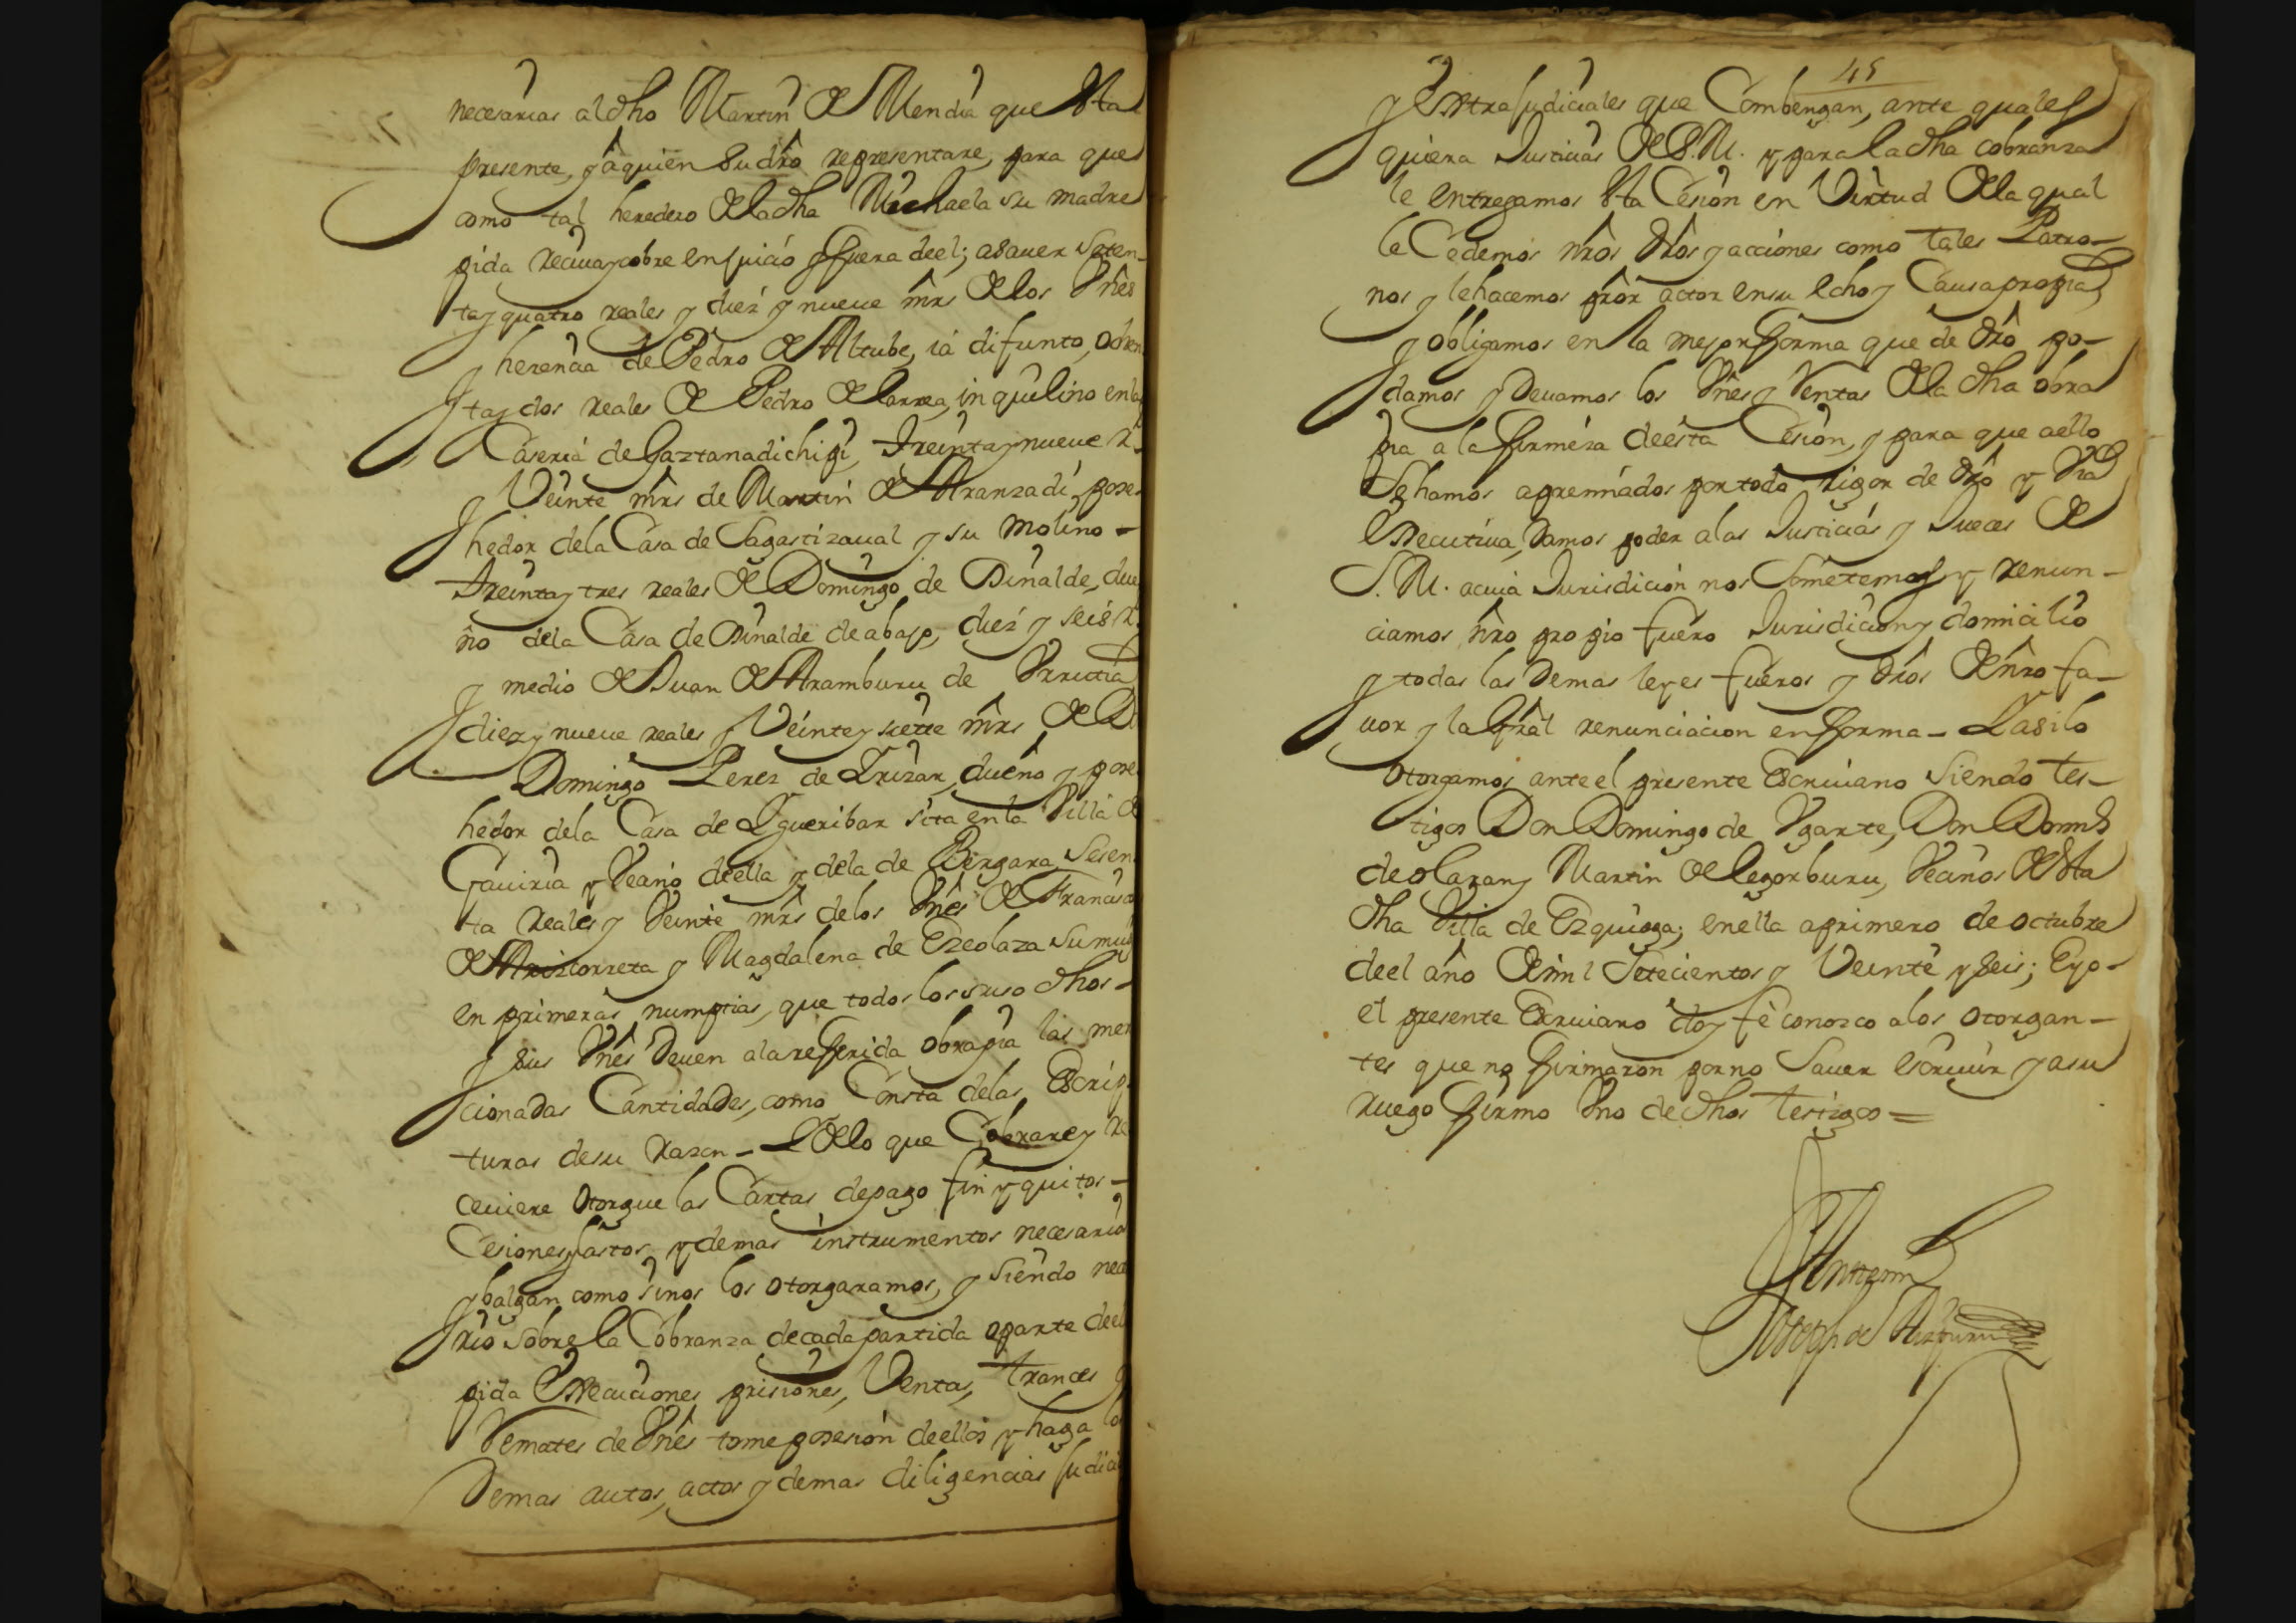 necesarias al dho Martin de Mendia que esta
presente, y a quien su dro representare, para que
como tal heredero de la dha Michaela su madre
pida reciva y cobre en juicio y fuera de el; a saver seten-
ta y quatro reales y diez y nueve mrs de los vnes
y herencia de Pedro de Altube, ia difunto, ochen
ta y dos reales de Pedro de Larrea, inquilino en la
Caseria de Gaztanadichipi, treinta y nueve r.
y Veinte mrs de Martin de Aranzadi, pose
hedor de la Casa de Sagastizaval y su molino -
treinta y tres reales de Domingo de Oinalde, due
ño de la Casa de Oinalde de abajo, diez y seis r.
y medio de Juan de Aramburu de Vrrutia
diez y nueve reales y Veinte y siette mrs de D
Domingo Perez de Yrizar, dueño y pose
hedor de la Casa de Ygueribar sita en la Villa de
Gaviria y Veano de ella y de la de Bergara, Sesen
ta reales y Veinte mrs de los Vnes de Francisco
de Ariztorreta y Magdalena de Ezeolaza su mug
en primeras numptias, que todos los suso dhos -
y sus Vnes Deven a la referida obra pia las men
cionadas Cantidades, como Consta de las Escrip
turas de su razon - Y de lo que Cobrare y re
ceviere otorgue las Cartas de pago fin y quitos -
Cesiones, lastos, y demas instrumentos necesario
y balgan como si nos los otorgaramos, y siendo nece
rio sobre la Cobranza de cada partida o parte de el
pida Execuciones, prisiones, Ventas, trances y
Remates de Vnes tome posesion de ellos y haga lo
Demas autos, actos y demas diligencias judicia
45
y Extrajudiciales que Combengan, ante quales
quiera Justicias de S.M. y para la dha cobranza
le entregamos esta Cesion en Virtud de la qual
le Cedemos nros dros y acciones como tales Patro-
nos y le hacemos pror actor en su echo y Causa propia,
y obligamos en la mejor forma que de dro po-
damos y Devamos los Vnes y Rentas de la dha obra
pia a la firmeza de esta Cesion, y para que a ello
Seamos apremiados por todo rigor de dro y Via
Executiva, Damos poder a las Justicias y Jueces de
S.M. a cuia Jurisdicion nos Sometemos, y renun-
ciamos nro propio fuero Jurisdicion y domicilio
y todas las Demas leyes fueros y dros de nro fa-
vor y la Gral renunciacion en forma - Y asi lo
otorgamos ante el presente Escrivano Siendo tes-
tigos Don Domingo de Vgarte, Don Domo
de olaran y Martin de legorburu, Vecinos de esta
dha Villa de Ezquioga; en ella a primero de octubre
de el año de mil Setecientos y Veinte y Seis; E yo-
el presente Escrivano doy fe conozco a los otorgan-
tes que no firmaron por no Saver escrivir y a su
ruego firmo Vno de dhos testigos =
Ante mi
Joseph de Aizpuru